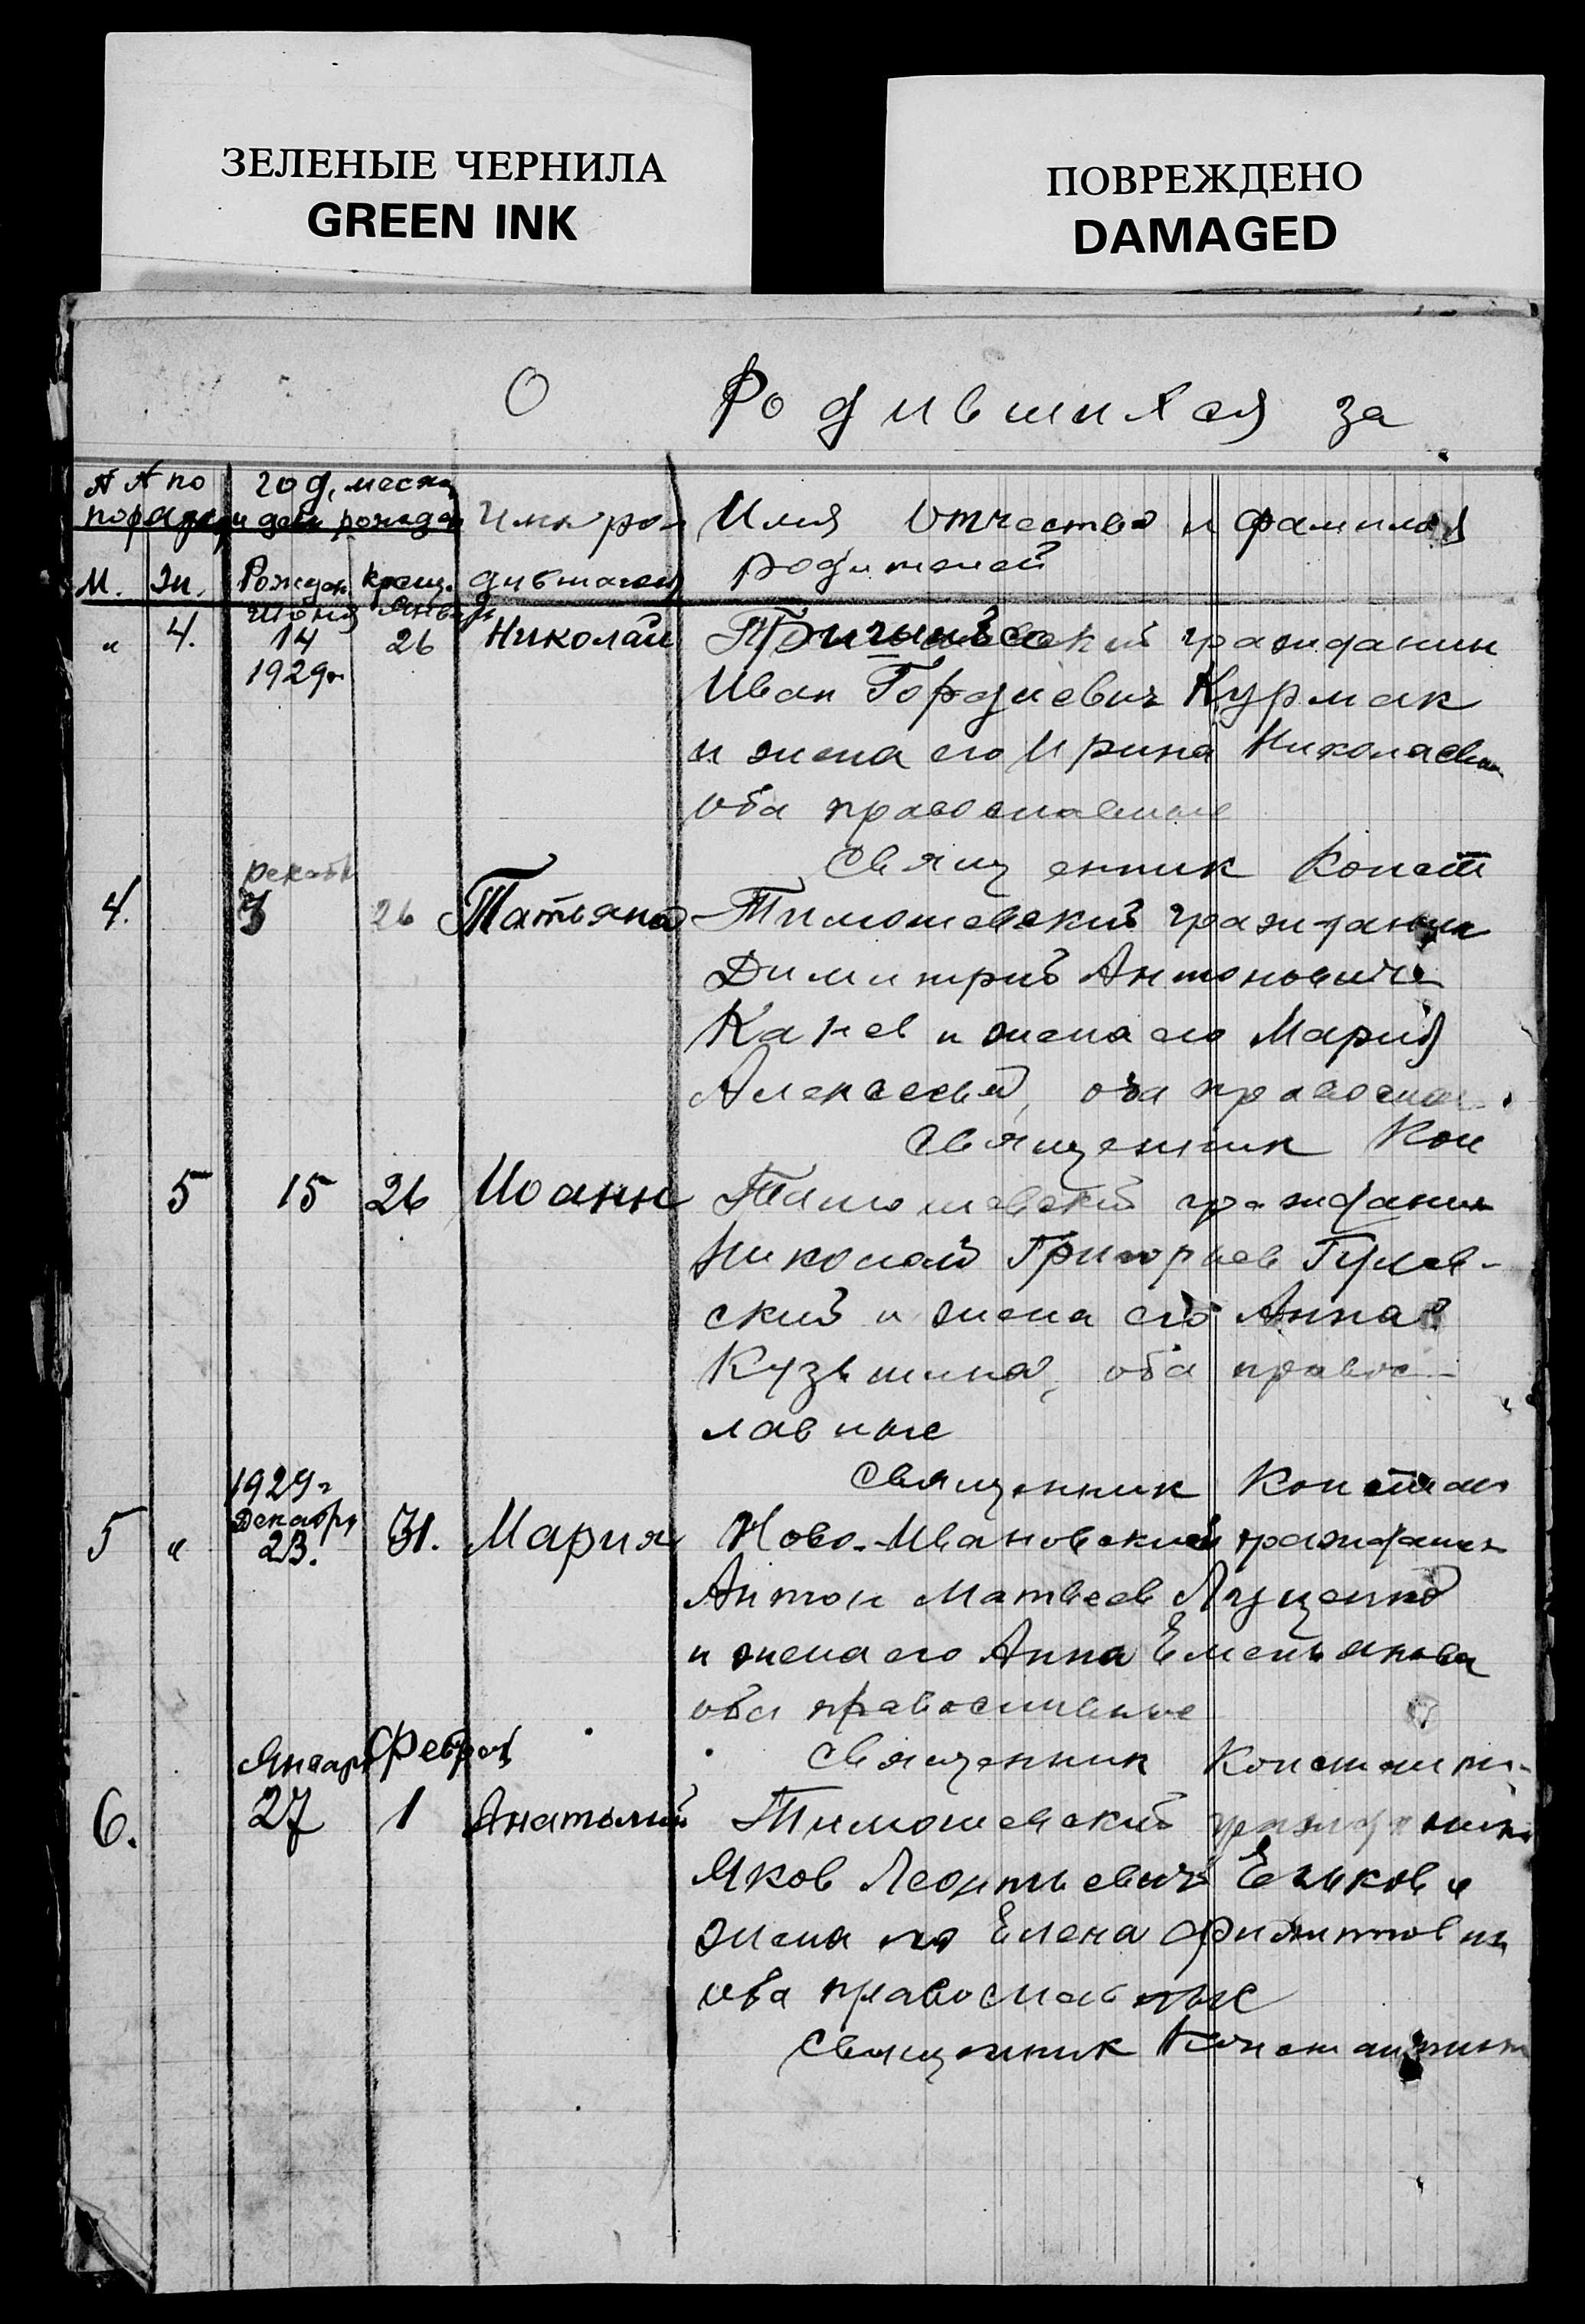 ЗЕЛЕНЫЕ ЧЕРНИЛА
GREEN INK
ПОВРЕЖДЕНО
DAMAGED
О Родившихся за
№ № по
год, месяц
Имя ро-
Имя Отчество и фамилия
дившагося
родителей
М. Ж.
Рожден
крещ.
Июня Января
" 4. 14 26 Николай
гражданин
1929г.
Иван Гордиевич Курмак
и жена его Ирина Николаевна
оба православные
Священник Конст
декабр
4. 3 26 Татьяна
Тимошевский гражданин
Димитрий Антонович
Канев и жена его Мария
Алексеева, оба православ
Священник Кон
5 15 26 Иоанн
Тимошевский гражданин
Николай Григорьев Гулев-
ский и жена его Анна
Кузьмина, оба правос-
лавные
Священник Констан
1929г
Декабря
5 " 23. 31. Мария
Ново-Ивановский гражданин
Антон Матвеев Луценко
и жена его Анна Емельянова
оба православные
Священник Константи-
Январ Феврал
6. 27 1 Анатолий
Тимошевский гражданин
Яков Леонтьевич Ельков и
жена его Елена
оба православные
Священник Константин